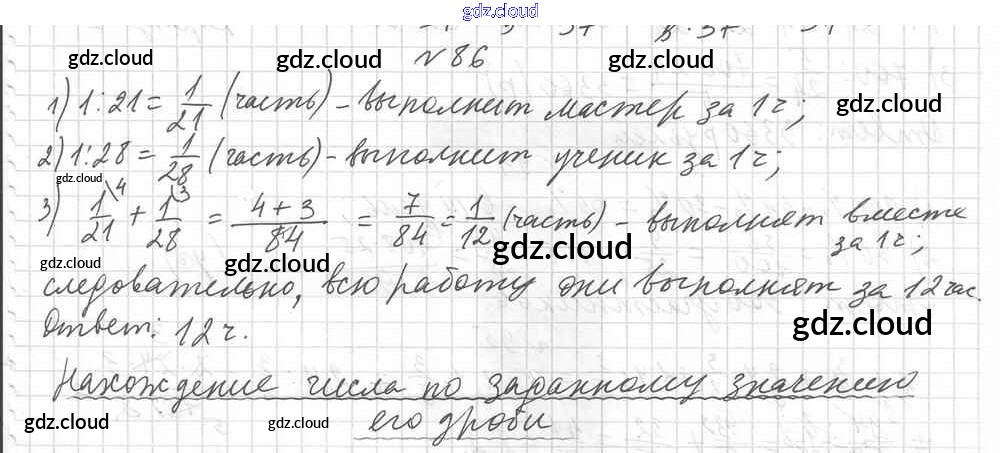 gdz.cloud
№ 86
gdz.cloud gdz.cloud gdz.cloud gdz.cloud
1) 1:21 = 1/21 (часть) - выполнит мастер за 1 ч;
2) 1:28 = 1/28 (часть) - выполнит ученик за 1 ч;
gdz.cloud
3) 1/21 \4 + 1/28 \3 = 4+3/84 = 7/84 = 1/12 (часть) - выполнят вместе
за 1 ч;
gdz.cloud gdz.cloud gdz.cloud
следовательно, всю работу они выполнят за 12 час.
Ответ: 12 ч.
gdz.cloud
Нахождение числа по заданному значению
его дроби
gdz.cloud gdz.cloud gdz.cloud